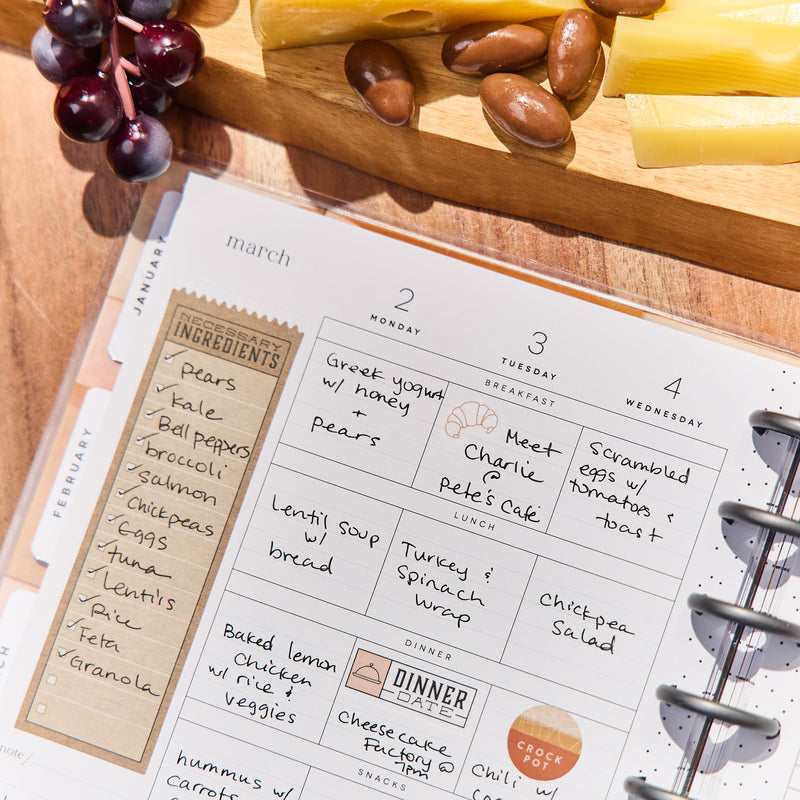 JANUARY
FEBRUARY
CH
march
NECESSARY
INGREDIENTS
pears
Kale
Bell peppers
broccoli
salmon
Chickpeas
Eggs
tuna
Lentils
Rice
Feta
Granola
note/
2
MONDAY
3
TUESDAY
4
WEDNESDAY
BREAKFAST
Greek yogurt
w/ honey
+
Pears
Meet
Charlie
@
Pete's Café
Scrambled
eggs w/
tomatoes &
toast
LUNCH
Lentil Soup
w/
bread
Turkey &
Spinach
wrap
Chickpea
Salad
DINNER
Baked lemon
Chicken
w/ rice &
veggies
DINNER
DATE
Cheesecake
Factory @
7pm
CROCK
POT
Chili w/
SNACKS
hummus w/
Carrots